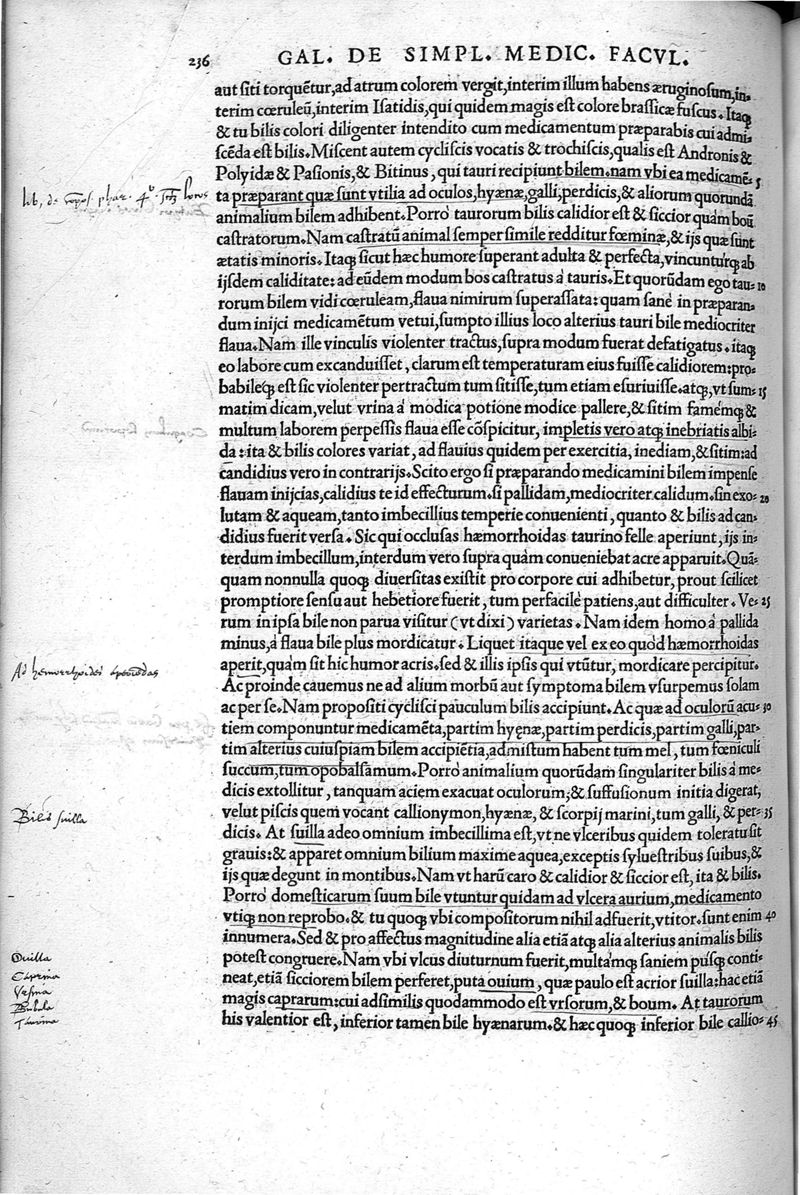 236 GAL. DE SIMPL. MEDIC. FACVL.
aut siti torquẽtur,ad atrum colorem vergit,interim illum habens æruginosum,in-
terim cœruleũ,interim Isatidis,qui quidem magis est colore brassicæ fuscus. Itaq;
& tu bilis colori diligenter intendito cum medicamentum præparabis cui admi-
scẽda est bilis. Miscent autem cycliscis vocatis & trochiscis,qualis est Andronis &
Polyidæ & Pasionis,& Bitinus, qui tauri recipiunt bilem.nam vbi ea medicamẽ- 5
lib. de compos. phar. 4°
ta præparant quæ sunt vtilia ad oculos,hyænæ,galli,perdicis,& aliorum quorundã
animalium bilem adhibent.Porrò taurorum bilis calidior est & siccior quàm boũ
castratorum.Nam castratũ animal semper simile redditur fœminæ,& ijs quæ sunt
ætatis minoris.Itaq; sicut hæc humore superant adulta & perfecta,vincunturq; ab
ijsdem caliditate: ad eũdem modum bos castratus à tauris.Et quorũdam ego tau- 10
rorum bilem vidi cœruleam,flaua nimirum superassata: quam sanè in præparan-
dum inijci medicamẽtum vetui,sumpto illius loco alterius tauri bile mediocriter
flaua.Nam ille vinculis violenter tractus,supra modum fuerat defatigatus.itaq;
eo labore cum excanduisset, clarum est temperaturam eius fuisse calidiorem:pro-
babileq; est sic violenter pertractum tum sitisse,tum etiam esuriuisse.atq; vt sum- 15
matim dicam,velut vrina à modica potione modice pallere,& sitim famẽmq; &
multum laborem perpessis flaua esse cõspicitur, impletis vero atq; inebriatis albi-
da:ita & bilis colores variat, ad flauius quidem per exercitia, inediam,& sitim:ad
candidius vero in contrarijs.Scito ergo si præparando medicamini bilem impense
flauam inijcias,calidius te id effecturum.si pallidam,mediocriter calidum.sin exo- 20
lutam & aqueam,tanto imbecillius temperie conuenienti, quanto & bilis ad can-
didius fuerit versa. Sic qui occlusas hæmorrhoidas taurino felle aperiunt, ijs in-
terdum imbecillum,interdum vero supra quàm conueniebat acre apparuit.Quã-
quam nonnulla quoq; diuersitas existit pro corpore cui adhibetur, prout scilicet
promptiore sensu aut hebetiore fuerit, tum perfacilè patiens,aut difficulter. Ve- 25
rum in ipsa bile non parua visitur (vt dixi) varietas. Nam idem homo à pallida
minus,à flaua bile plus mordicatur. Liquet itaque vel ex eo quòd hæmorrhoidas
Ad hemorrhoides aperiẽdas
aperit,quàm sit hic humor acris.sed & illis ipsis qui vtũtur, mordicare percipitur.
Ac proinde cauemus ne ad alium morbũ aut symptoma bilem vsurpemus solam
ac per se.Nam propositi cyclisci pauculum bilis accipiunt.Ac quæ ad oculorũ acu- 30
tiem componuntur medicamẽta,partim hyęnæ,partim perdicis,partim galli,par-
tim alterius cuiuspiam bilem accipiẽtia,admistum habent tum mel, tum fœniculi
succum,tum opobalsamum.Porrò animalium quorũdam singulariter bilis à me-
dicis extollitur, tanquam aciem exacuat oculorum;& suffusionum initia digerat,
Bilis suilla
velut piscis quem vocant callionymon,hyænæ, & scorpij marini,tum galli, & per- 35
dicis. At suilla adeo omnium imbecillima est,vt ne vlceribus quidem toleratu sit
grauis:& apparet omnium bilium maxime aquea,exceptis syluestribus suibus,&
ijs quæ degunt in montibus.Nam vt harũ caro & calidior & siccior est, ita & bilis.
Porrò domesticarum suum bile vtuntur quidam ad vlcera aurium,medicamento
vtiq; non reprobo.& tu quoq; vbi compositorum nihil adfuerit,vtitor.sunt enim 40
innumera.Sed & pro affectus magnitudine alia etiã atq; alia alterius animalis bilis
Ouilla
potest congruere. Nam vbi vlcus diuturnum fuerit,multámq; saniem púsq; conti-
Caprina
neat,etiã sicciorem bilem perferet,puta ouium, quæ paulo est acrior suilla: hac etiã
Vrsina
Bubula
magis caprarum:cui adsimilis quodammodo est vrsorum,& boum. At taurorum
Taurina
his valentior est, inferior tamen bile hyænarum.& hæc quoq; inferior bile callio- 45